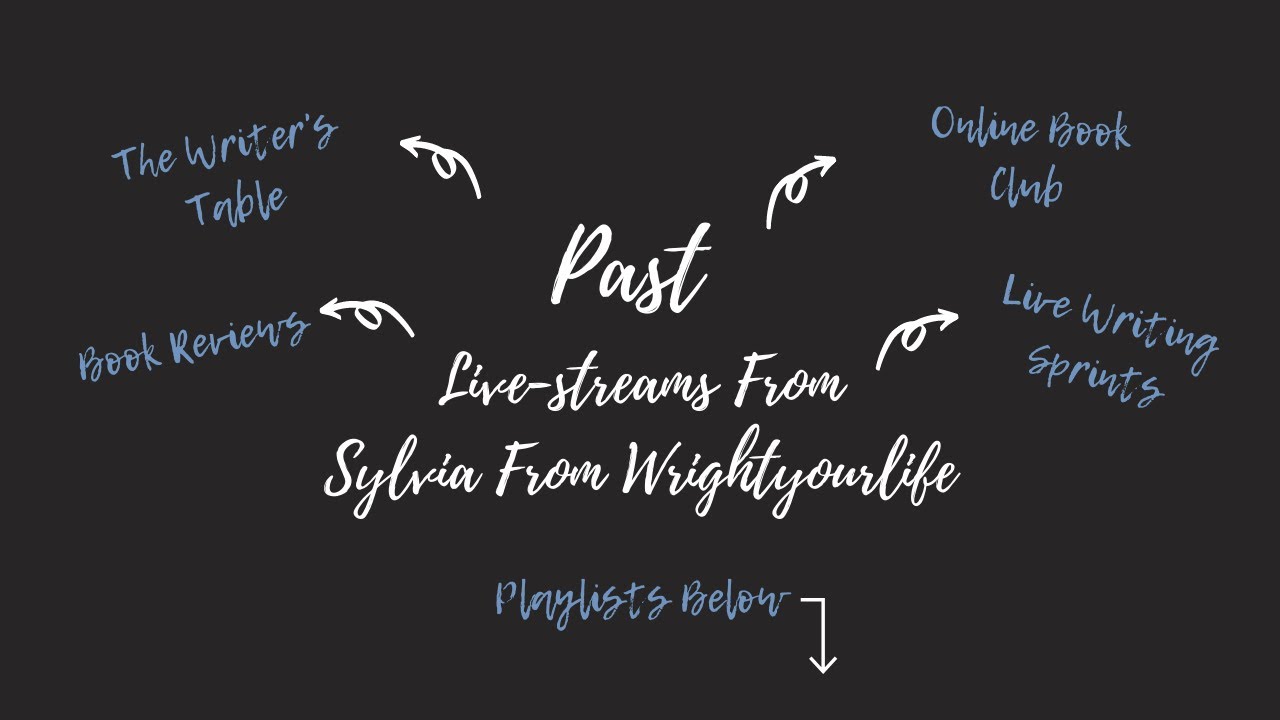 The Writer's
Table
Online Book
Club
Past
Book Reviews
Live Writing
Sprints
Live-streams From
Sylvia From Wrightyourlife
Playlists Below